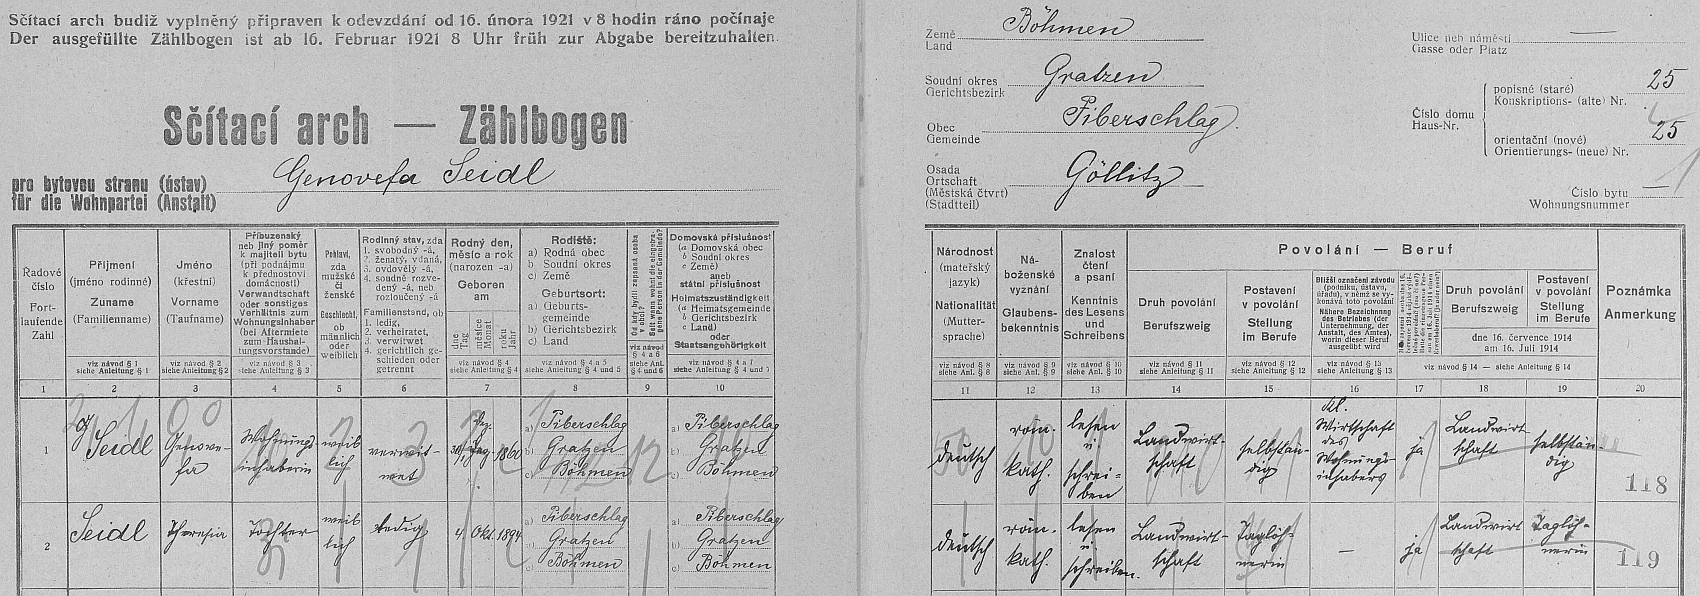 Sčítací arch budiž vyplněný připraven k odevzdání od 16. února 1921 v 8 hodin ráno počínaje
Der ausgefüllte Zählbogen ist ab 16. Februar 1921 8 Uhr früh zur Abgabe bereitzuhalten.
Sčítací arch — Zählbogen
pro bytovou stranu (ústav)
für die Wohnpartei (Anstalt)
Genovefa Seidl
Země
Land
Böhmen
Soudní okres
Gerichtsbezirk
Gratzen
Obec
Gemeinde
Piberschlag
Osada
Ortschaft
(Městská čtvrt)
(Stadtteil)
Göllitz
Ulice neb náměstí
Gasse oder Platz
—
Číslo domu
Haus-Nr.
popisné (staré)
Konskriptions- (alte) Nr.
25
orientační (nové)
Orientierungs- (neue) Nr.
25
Číslo bytu
Wohnungsnummer
—
Řadové
číslo
Fort-
laufende
Zahl
1
Příjmení
(jméno rodinné)
Zuname
(Familienname)
viz návod § 1
siehe Anleitung § 1
2
Jméno
(křestní)
Vorname
(Taufname)
viz návod § 2
siehe Anleitung § 2
3
Příbuzenský
neb jiný poměr
k majiteli bytu
(při podnájmu
k přednostovi
domácnosti)
Verwandtschaft
oder sonstiges
Verhältnis zum
Wohnungsinhaber
(bei Aftermiete
zum Haushal-
tungsvorstande)
viz návod § 3
siehe Anleitung § 3
4
Pohlaví,
zda
mužské
či
ženské
Geschlecht,
ob
männlich
oder
weiblich
5
Rodinný stav, zda
1. svobodný -á,
2. ženatý, vdaná,
3. ovdovělý -á,
4. soudně rozve-
dený -á, neb
rozloučený -á
Familienstand, ob
1. ledig,
2. verheiratet,
3. verwitwet
4. gerichtlich ge-
schieden oder
getrennt
6
Rodný den,
měsíc a rok
(narozen -a)
Geboren
am
dne
Tag
měsíce
Monat
roku
Jahr
viz návod § 4
siehe Anleitung § 4
7
Rodiště:
a) Rodná obec
b) Soudní okres
c) Země
Geburtsort:
a) Geburts-
gemeinde
b) Gerichtsbezirk
c) Land
viz návod § 4 a 5
siehe Anleitung § 4 und 5
8
Od kdy bydlí zapsaná osoba
v obci?
Seit wann wohnt die eingetra-
gene Person in der Gemeinde?
viz návod
§ 4 a 6
siehe Anl.
§ 4 und 6
9
Domovská příslušnost
(a Domovská obec
b Soudní okres
c Země)
aneb
státní příslušnost
Heimatszuständigkeit
(a Heimatsgemeinde
b Gerichtsbezirk
c Land)
oder
Staatsangehörigkeit
viz návod § 4 a 7
siehe Anleitung § 4 und 7
10
Národnost
(mateřský
jazyk)
Nationalität
(Mutter-
sprache)
viz návod § 8
siehe Anl. § 8
11
Ná-
boženské
vyznání
Glaubens-
bekenntnis
viz návod § 9
siehe Anl. § 9
12
Znalost
čtení
a psaní
Kenntnis
des Lesens
und
Schreibens
viz návod § 10
siehe Anl. § 10
13
Povolání — Beruf
Druh povolání
Berufszweig
viz návod § 11
siehe Anleitung § 11
14
Postavení
v povolání
Stellung
im Berufe
viz návod § 12
siehe Anleitung § 12
15
Bližší označení závodu
(podniku, ústavu,
úřadu), v němž se vy-
konává toto povolání
Nähere Bezeichnung
des Betriebes (der
Unternehmung, der
Anstalt, des Amtes),
worin dieser Beruf
ausgeübt wird
viz návod § 13
siehe Anleitung § 13
16
17
Druh povolání
Berufszweig
Postavení
v povolání
Stellung
im Berufe
dne 16. července 1914
am 16. Juli 1914
viz návod § 14 — siehe Anleitung § 14
18
19
Poznámka
Anmerkung
20
1
Seidl
Genove-
fa
Wohnungs-
inhaberin
weib
lich
verwit-
wet
Dez.
1860
a) Piberschlag
b) Gratzen
c) Böhmen
a) Piberschlag
b) Gratzen
c) Böhmen
deutsch
röm.
kath.
lesen
u
schrei-
ben
Landwirt-
schaft
selbstän-
dig
Kl.
Wirtschaft
des
Wohnungs-
inhabers
ja
Landwirt
schaft
selbstän-
dig
118
2
Seidl
Theresia
Tochter
weib
lich
ledig
4. Okt. 1894
a) Piberschlag
b) Gratzen
c) Böhmen
a) Piberschlag
b) Gratzen
c) Böhmen
deutsch
röm.
kath.
lesen
u
schreiben.
Landwirt-
schaft
Taglöh-
nerin
—
ja
Landwirt
schaft
Taglöh-
nerin
119